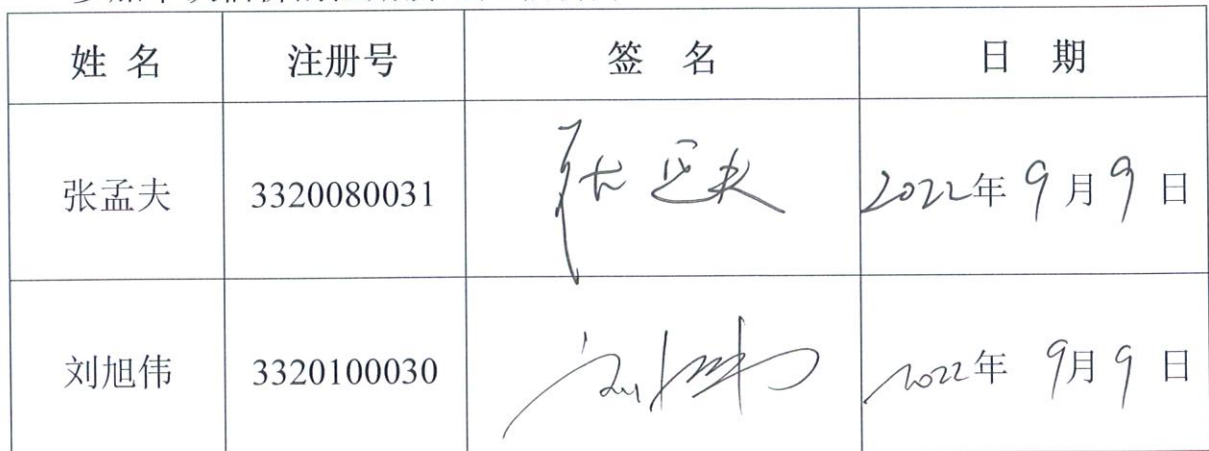 姓 名 注册号 签 名 日 期
张孟夫 3320080031 张孟夫 2022年 9月9日
刘旭伟 3320100030 刘旭伟 2022年 9月9日